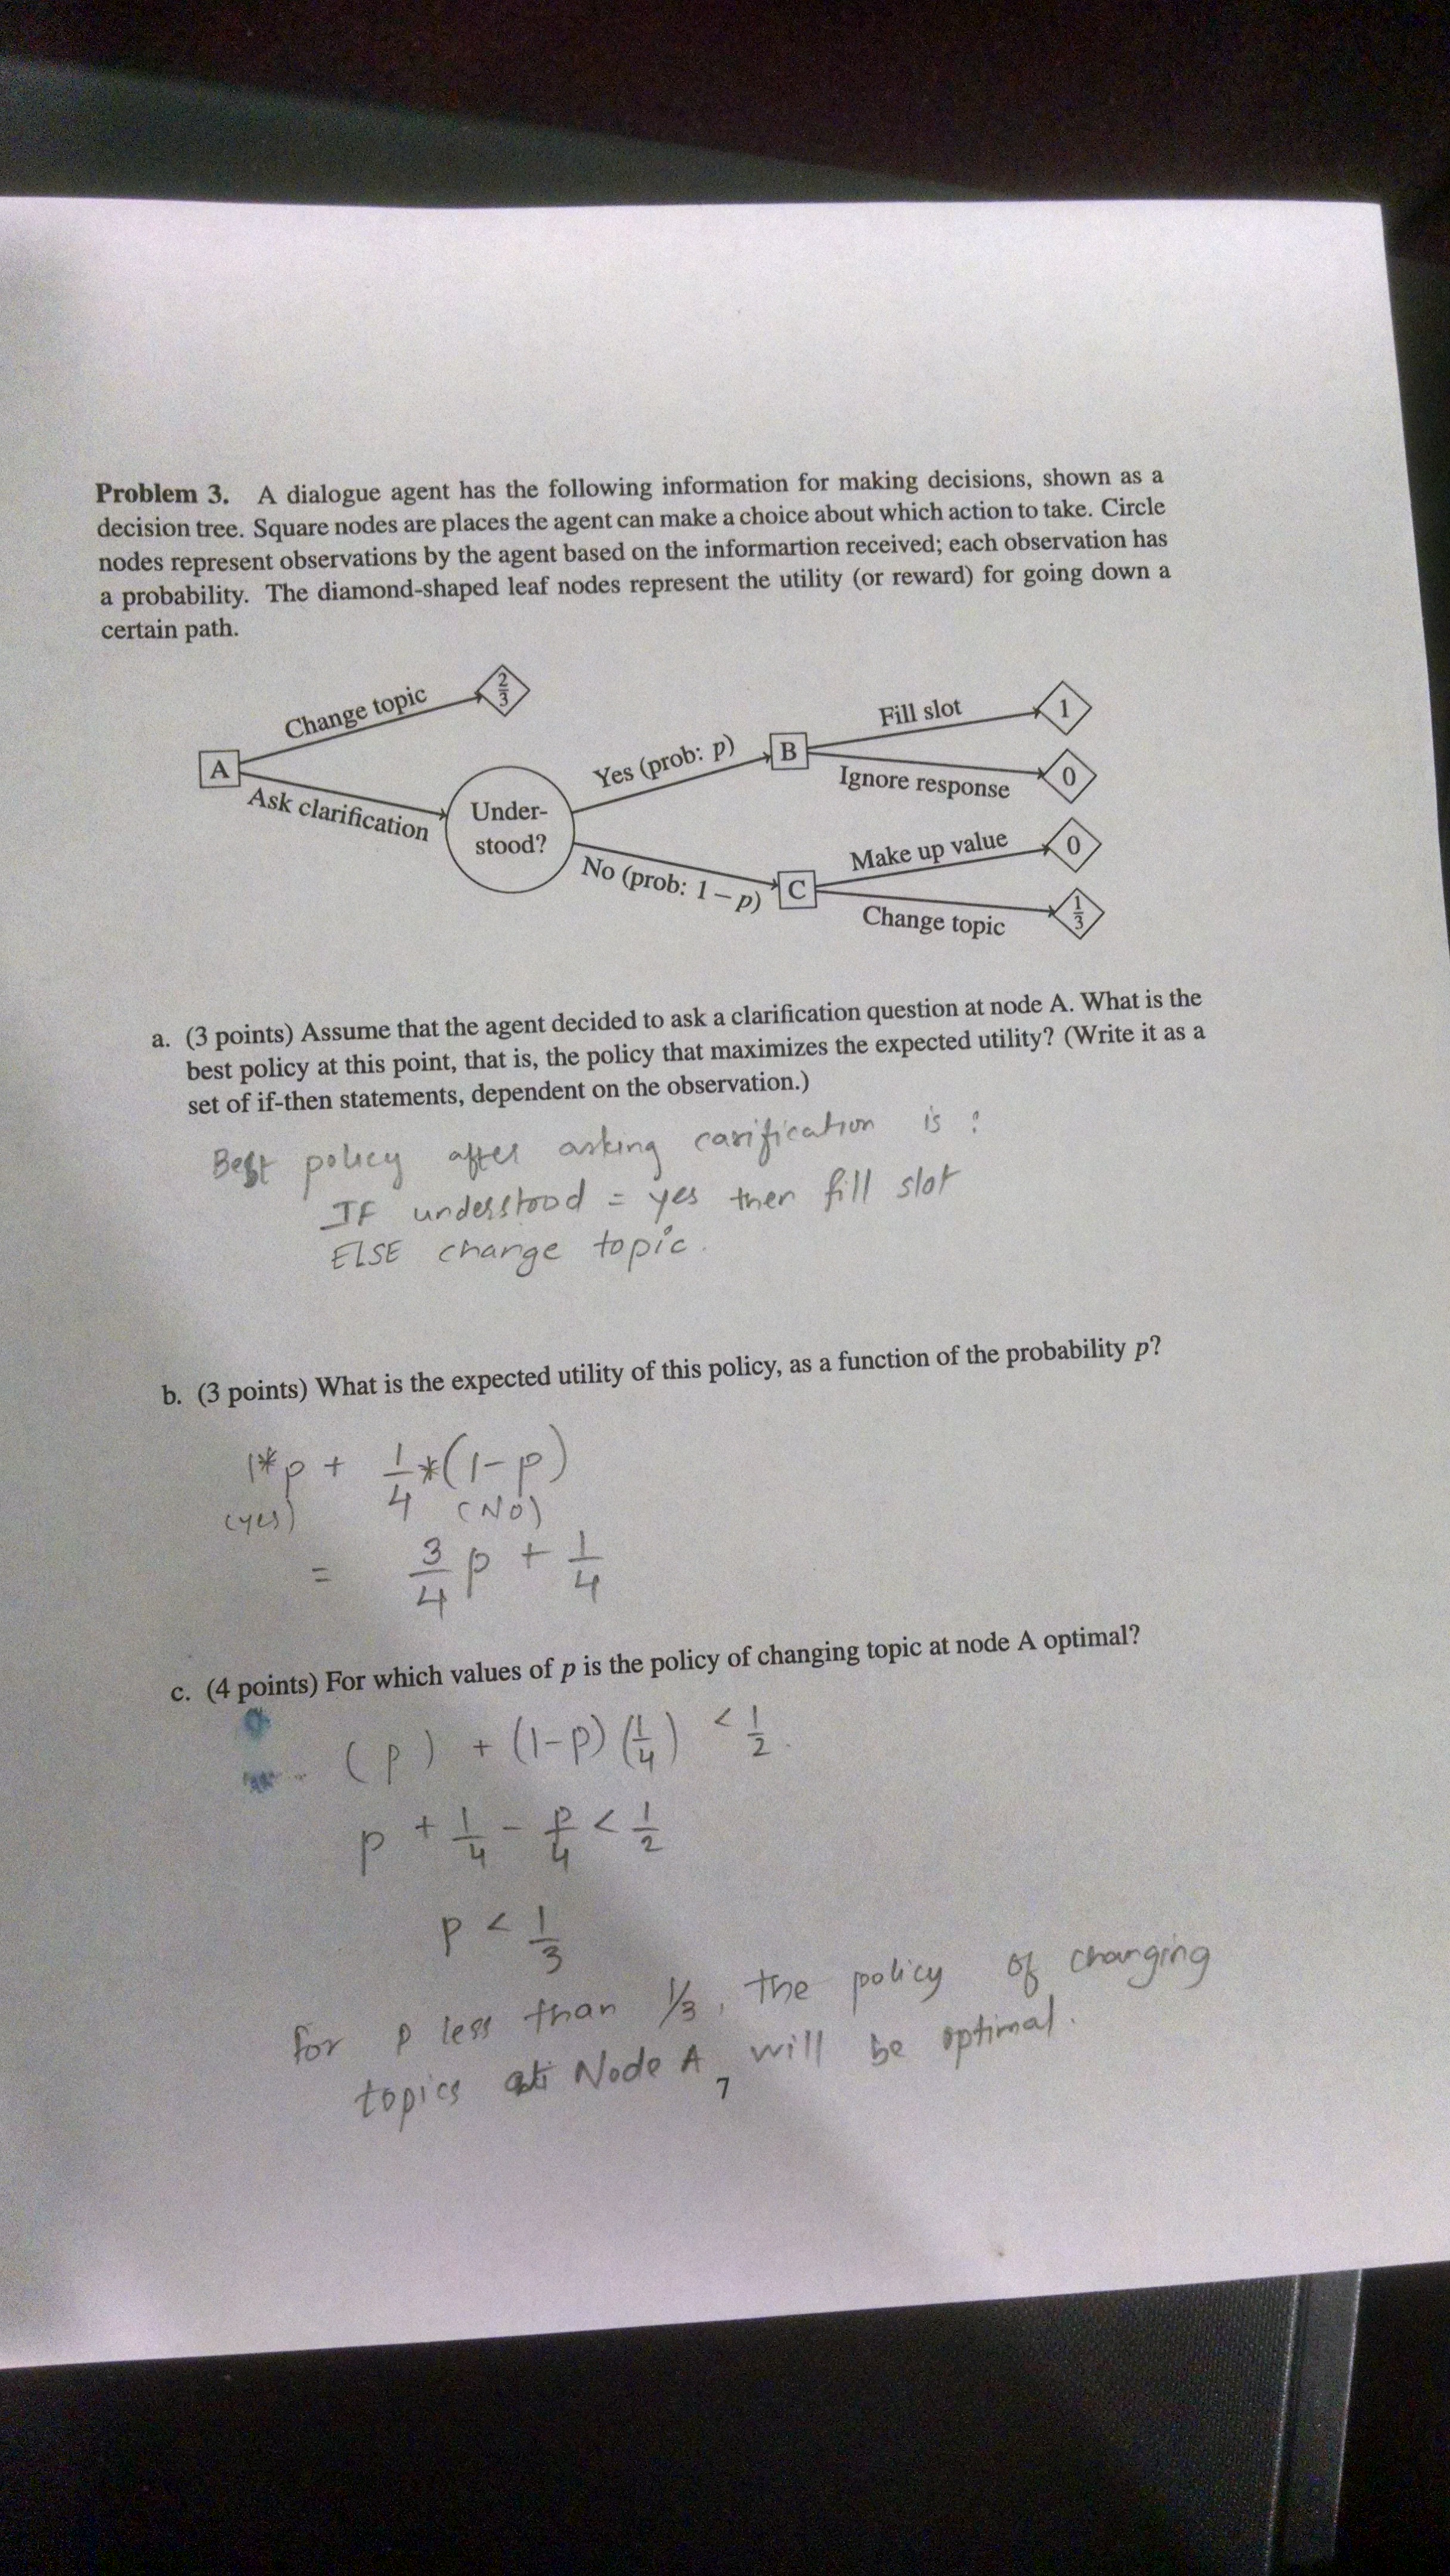 Problem 3. A dialogue agent has the following information for making decisions, shown as a
decision tree. Square nodes are places the agent can make a choice about which action to take. Circle
nodes represent observations by the agent based on the informartion received; each observation has
a probability. The diamond-shaped leaf nodes represent the utility (or reward) for going down a
certain path.
A
Change topic
2/3
Ask clarification
Under-
stood?
Yes (prob: p)
B
Fill slot
1
Ignore response
0
No (prob: 1 – p)
C
Make up value
0
Change topic
1/3
a. (3 points) Assume that the agent decided to ask a clarification question at node A. What is the
best policy at this point, that is, the policy that maximizes the expected utility? (Write it as a
set of if-then statements, dependent on the observation.)
Best policy after asking carification is :
IF understood = yes then fill slot
ELSE change topic.
b. (3 points) What is the expected utility of this policy, as a function of the probability p?
1*p + 1/4 *(1-p)
(yes) (NO)
= 3/4 p + 1/4
c. (4 points) For which values of p is the policy of changing topic at node A optimal?
(p) + (1-p) (1/4) < 1/2.
p + 1/4 - p/4 < 1/2
p < 1/3
for p less than 1/3, the policy of changing
topics at Node A will be optimal.
7